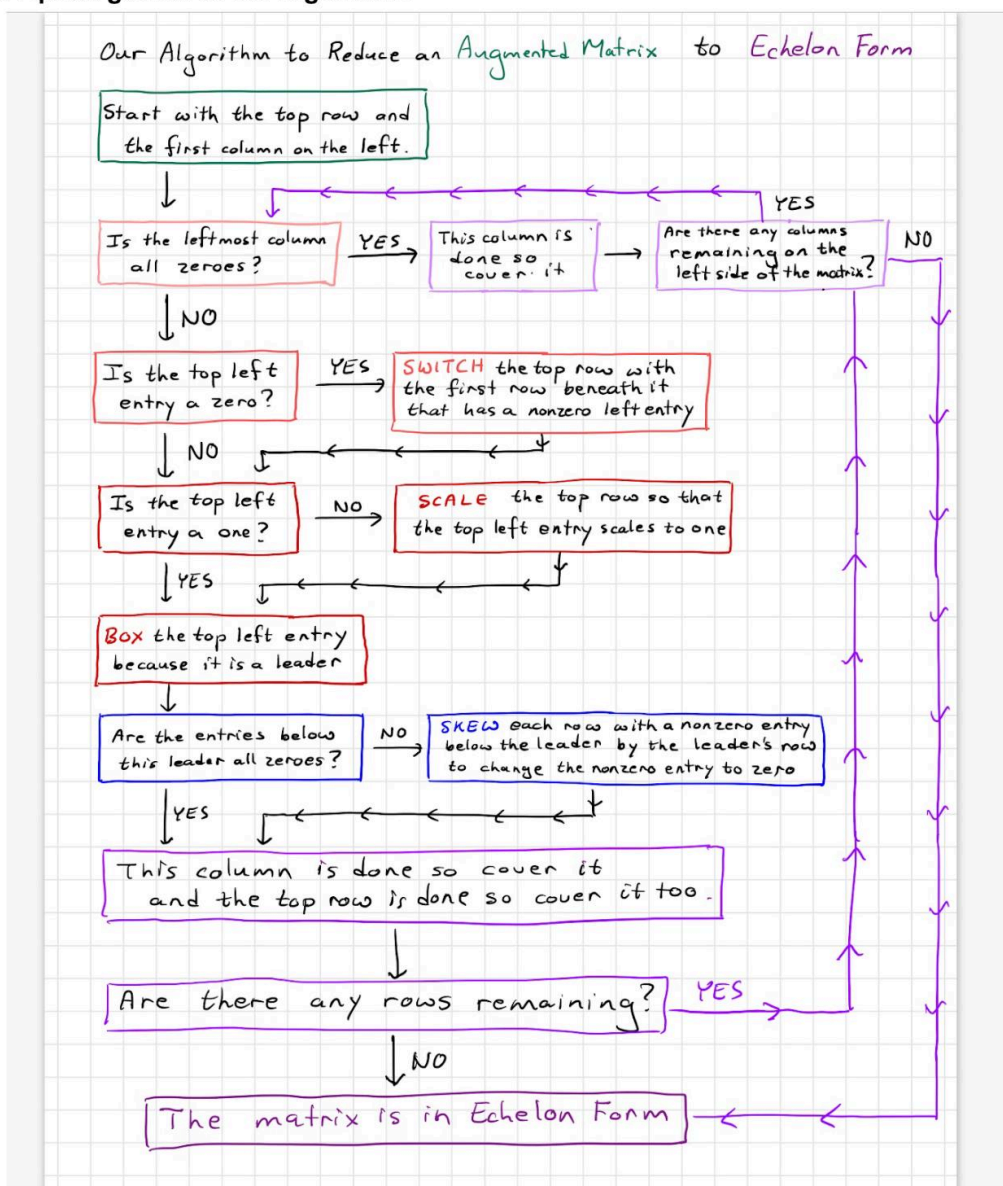 Our Algorithm to Reduce an Augmented Matrix to Echelon Form
Start with the top row and
the first column on the left.
YES
Is the leftmost column
all zeroes?
YES
This column is
done so
cover it
Are there any columns
remaining on the
left side of the matrix?
NO
NO
Is the top left
entry a zero?
YES
SWITCH the top row with
the first row beneath it
that has a nonzero left entry
NO
Is the top left
entry a one?
NO
SCALE the top row so that
the top left entry scales to one
YES
BOX the top left entry
because it is a leader
Are the entries below
this leader all zeroes?
NO
SKEW each row with a nonzero entry
below the leader by the leader's row
to change the nonzero entry to zero
YES
This column is done so cover it
and the top row is done so cover it too.
Are there any rows remaining?
YES
NO
The matrix is in Echelon Form